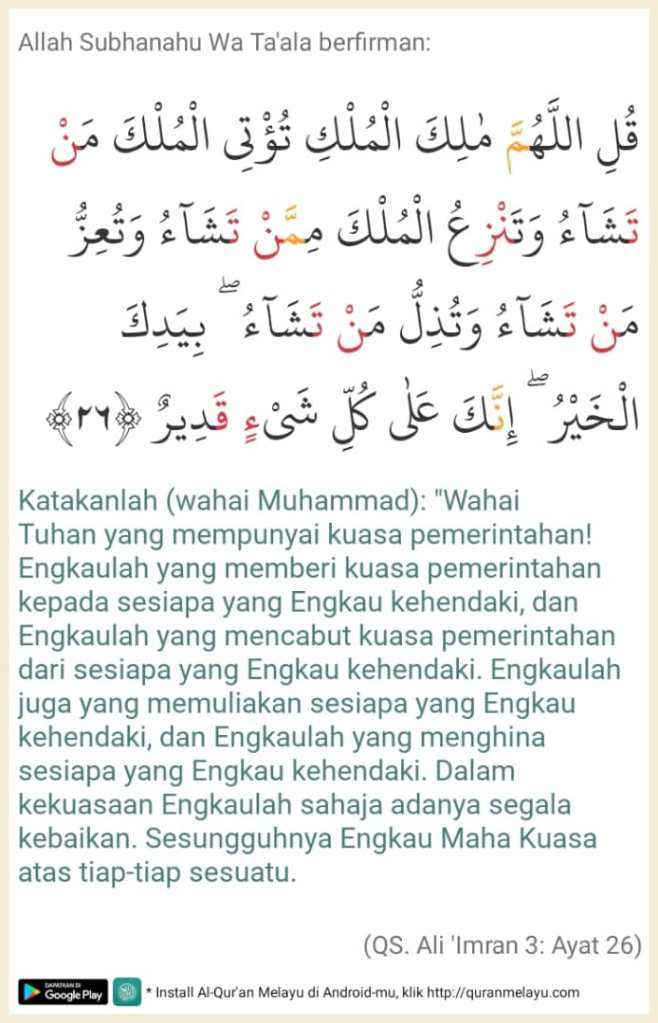 Allah Subhanahu Wa Ta'ala berfirman:
قُلِ اللَّهُمَّ مٰلِكَ الْمُلْكِ تُؤْتِى الْمُلْكَ مَنْ
تَشَآءُ وَتَنْزِعُ الْمُلْكَ مِمَّنْ تَشَآءُ وَتُعِزُّ
مَنْ تَشَآءُ وَتُذِلُّ مَنْ تَشَآءُ ۖ بِيَدِكَ
الْخَيْرُ ۖ إِنَّكَ عَلٰى كُلِّ شَىْءٍ قَدِيرٌ ﴿٢٦﴾
Katakanlah (wahai Muhammad): "Wahai
Tuhan yang mempunyai kuasa pemerintahan!
Engkaulah yang memberi kuasa pemerintahan
kepada sesiapa yang Engkau kehendaki, dan
Engkaulah yang mencabut kuasa pemerintahan
dari sesiapa yang Engkau kehendaki. Engkaulah
juga yang memuliakan sesiapa yang Engkau
kehendaki, dan Engkaulah yang menghina
sesiapa yang Engkau kehendaki. Dalam
kekuasaan Engkaulah sahaja adanya segala
kebaikan. Sesungguhnya Engkau Maha Kuasa
atas tiap-tiap sesuatu.
(QS. Ali 'Imran 3: Ayat 26)
DAPATKAN DI
Google Play
* Install Al-Qur'an Melayu di Android-mu, klik http://quranmelayu.com